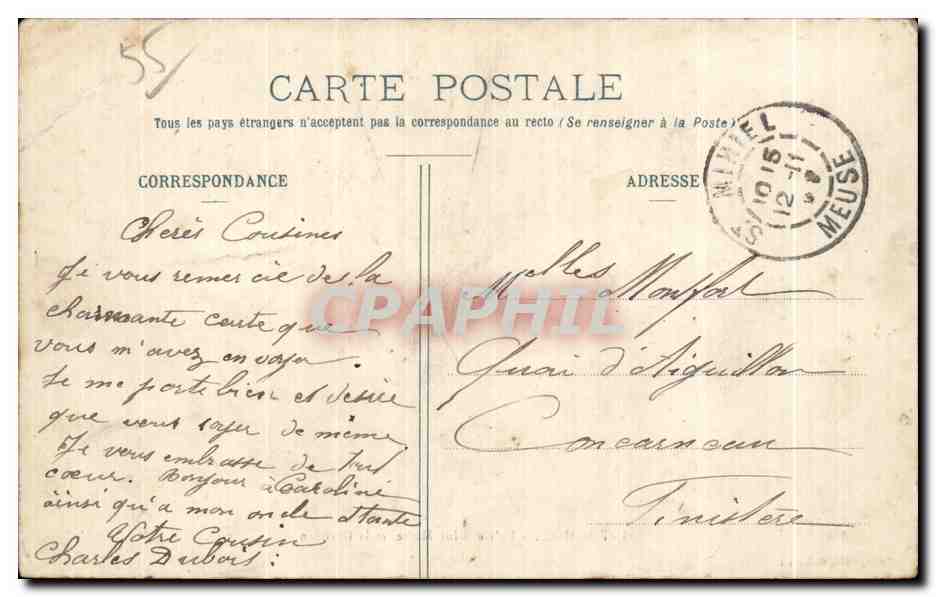 55
CARTE POSTALE
Tous les pays étrangers n'acceptent pas la correspondance au recto (Se renseigner à la Poste)
CORRESPONDANCE
ADRESSE
ST MIHIEL
10 15
12 -11
MEUSE
Cherès Cousines
Je vous remer cie de la
charmante carte que
vous m'avez en voyer.
Je me porte bien et désire
que vous soyer de même
Je vous embrasse de tout
coeur. Bonjour à Caroline
ainsi qu'a mon oncle et tante
Votre Cousin
Charles Dubois.
Melles Monfort
Quai d'Aiguillon
Concarneau
Finistere
CPAPHIL